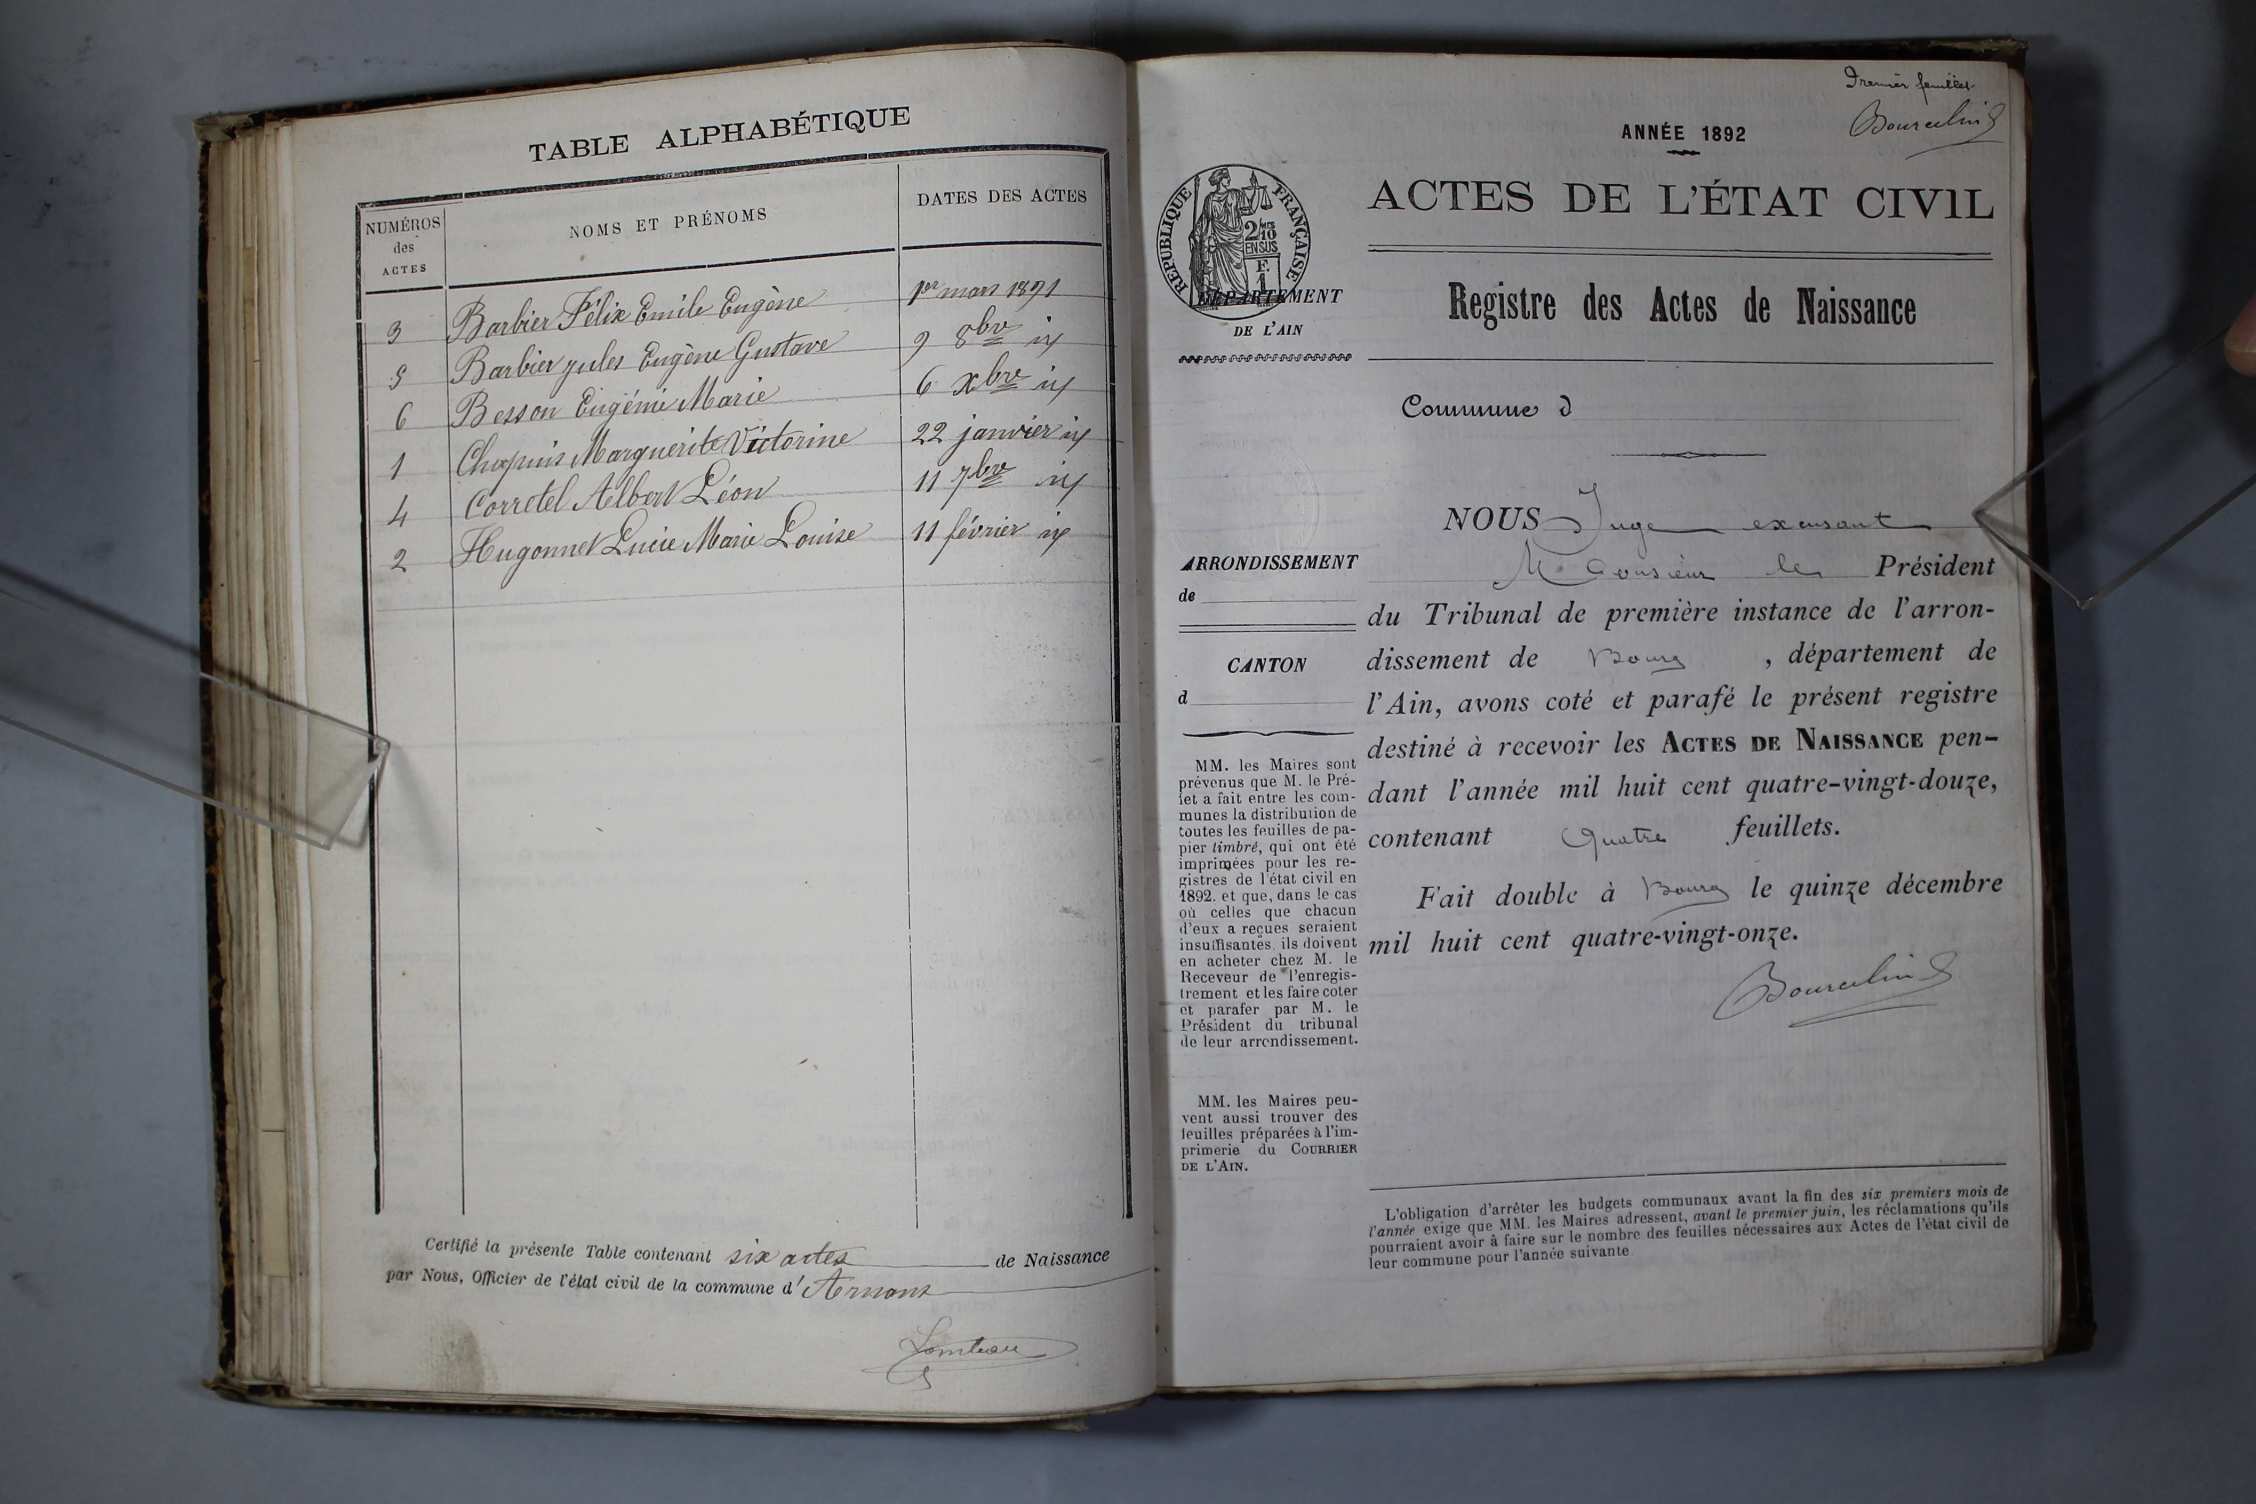 TABLE ALPHABÉTIQUE
NUMÉROS
des
ACTES
NOMS ET PRÉNOMS
DATES DES ACTES
3 Barbier Félix Emile Eugène 1er mars 1891
5 Barbier Jules Eugène Gustave 9 8bre
6 Besson Eugénie Marie 6 Xbre
1 Chapuis Marguerite Victorine 22 janvier
4 Corretel Albert Léon 11 7bre
2 Hugonnet Lucie Marie Louise 11 février
Certifié la présente Table contenant six actes de Naissance
par Nous, Officier de l'état civil de la commune d' Arnans
Premier feuillet
ANNÉE 1892
RÉPUBLIQUE FRANÇAISE
2/10
EN SUS
F.
1
ACTES DE L'ÉTAT CIVIL
DÉPARTEMENT
DE L'AIN
Registre des Actes de Naissance
Commune d
ARRONDISSEMENT
de
CANTON
d
MM. les Maires sont
prévenus que M. le Pré-
fet a fait entre les com-
munes la distribution de
toutes les feuilles de pa-
pier timbré, qui ont été
imprimées pour les re-
gistres de l'état civil en
1892. et que, dans le cas
où celles que chacun
d'eux a reçues seraient
insuffisantes, ils doivent
en acheter chez M. le
Receveur de l'enregis-
trement et les faire coter
et parafer par M. le
Président du tribunal
de leur arrondissement.
MM. les Maires peu-
vent aussi trouver des
feuilles préparées à l'im-
primerie du COURRIER
DE L'AIN.
NOUS Juge excusant
Monsieur le Président
du Tribunal de première instance de l'arron-
dissement de Bourg , département de
l'Ain, avons coté et parafé le présent registre
destiné à recevoir les ACTES DE NAISSANCE pen-
dant l'année mil huit cent quatre-vingt-douze,
contenant quatre feuillets.
Fait double à Bourg le quinze décembre
mil huit cent quatre-vingt-onze.
L'obligation d'arrêter les budgets communaux avant la fin des six premiers mois de
l'année exige que MM. les Maires adressent, avant le premier juin, les réclamations qu'ils
pourraient avoir à faire sur le nombre des feuilles nécessaires aux Actes de l'état civil de
leur commune pour l'année suivante